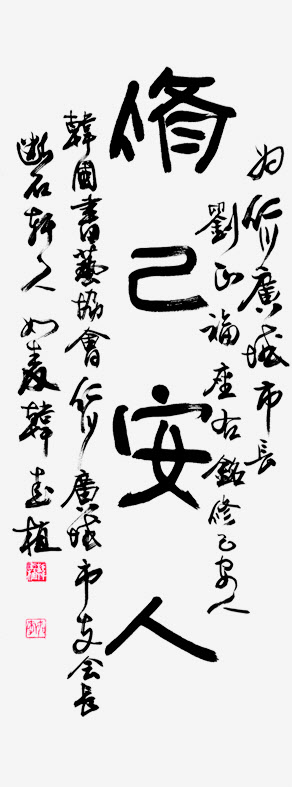 为仁川廣域市長
劉正福座右銘修己安人
脩己安人
韓國書藝協會仁川廣域市支会長
石軒人如韓植